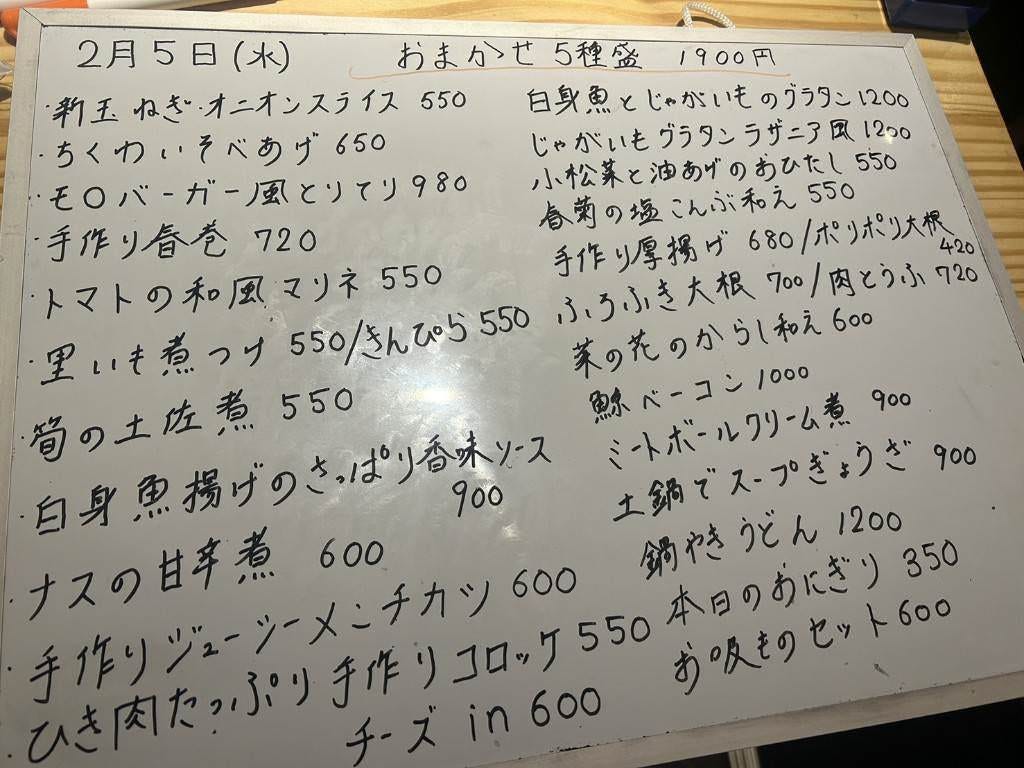 2月5日(水)
おまかせ 5種盛 1900円
・新玉ねぎ・オニオンスライス 550
・ちくわいそべあげ 650
・モロバーガー風とりてり 980
・手作り春巻 720
・トマトの和風マリネ 550
・里いも煮つけ 550/きんぴら 550
・筍の土佐煮 550
・白身魚揚げのさっぱり香味ソース
900
・ナスの甘辛煮 600
・手作りジューシーメンチカツ 600
・ひき肉たっぷり手作りコロッケ 550
チーズ in 600
白身魚とじゃがいものグラタン 1200
じゃがいもグラタンラザニア風 1200
小松菜と油あげのおひたし 550
春菊の塩こんぶ和え 550
手作り厚揚げ 680/ポリポリ大根
420
ふろふき大根 700/肉とうふ 720
菜の花のからし和え 600
鯨ベーコン 1000
ミートボールクリーム煮 900
土鍋でスープぎょうざ 900
鍋やきうどん 1200
本日のおにぎり 350
お吸ものセット 600